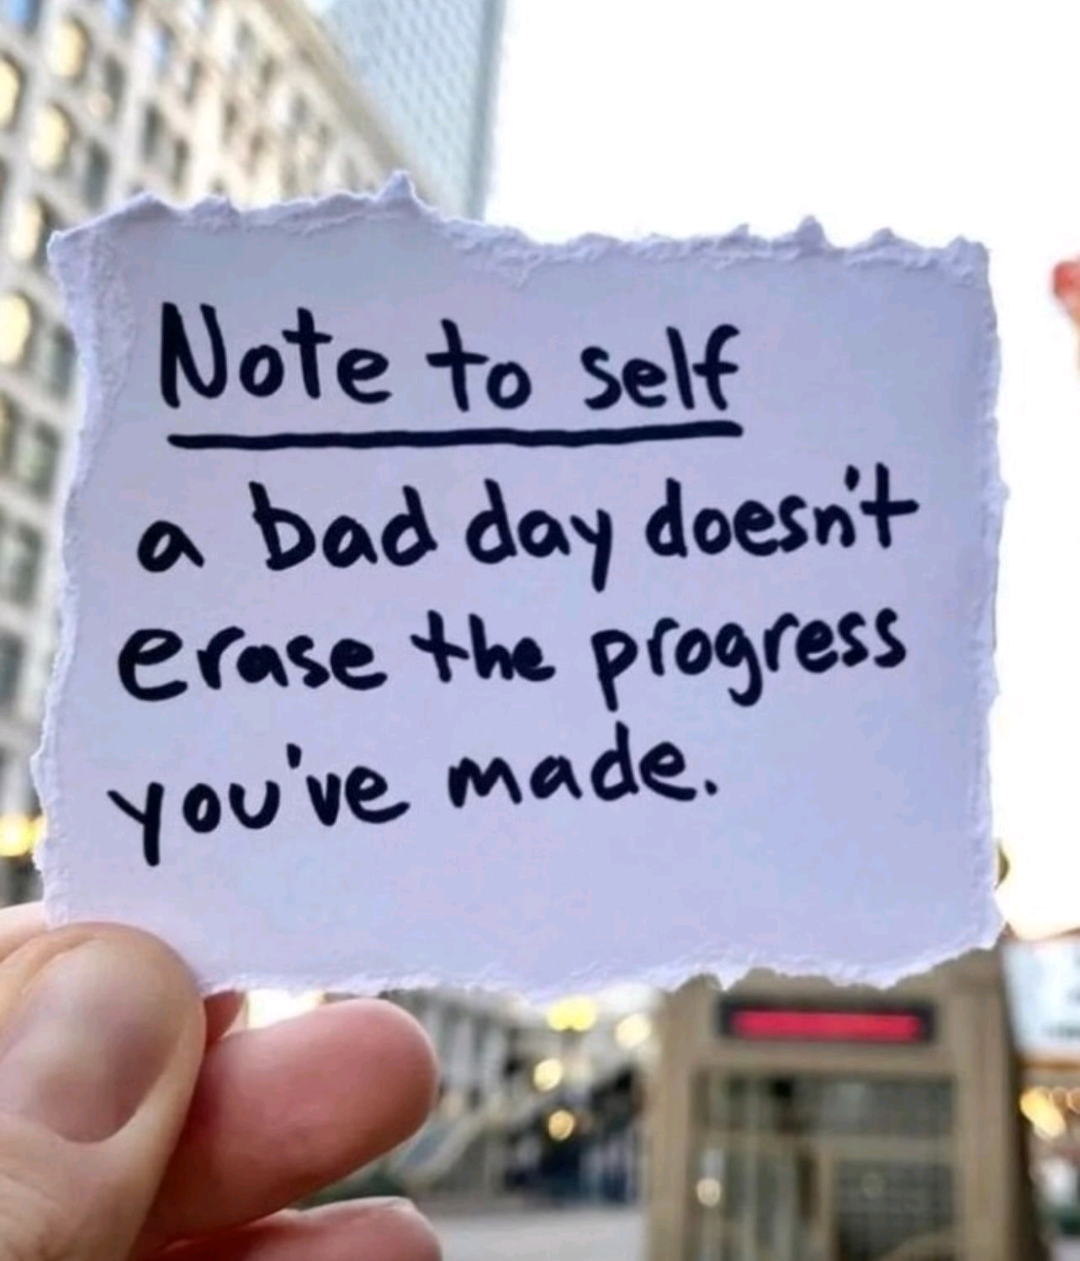 Note to self
a bad day doesn't
erase the progress
you've made.